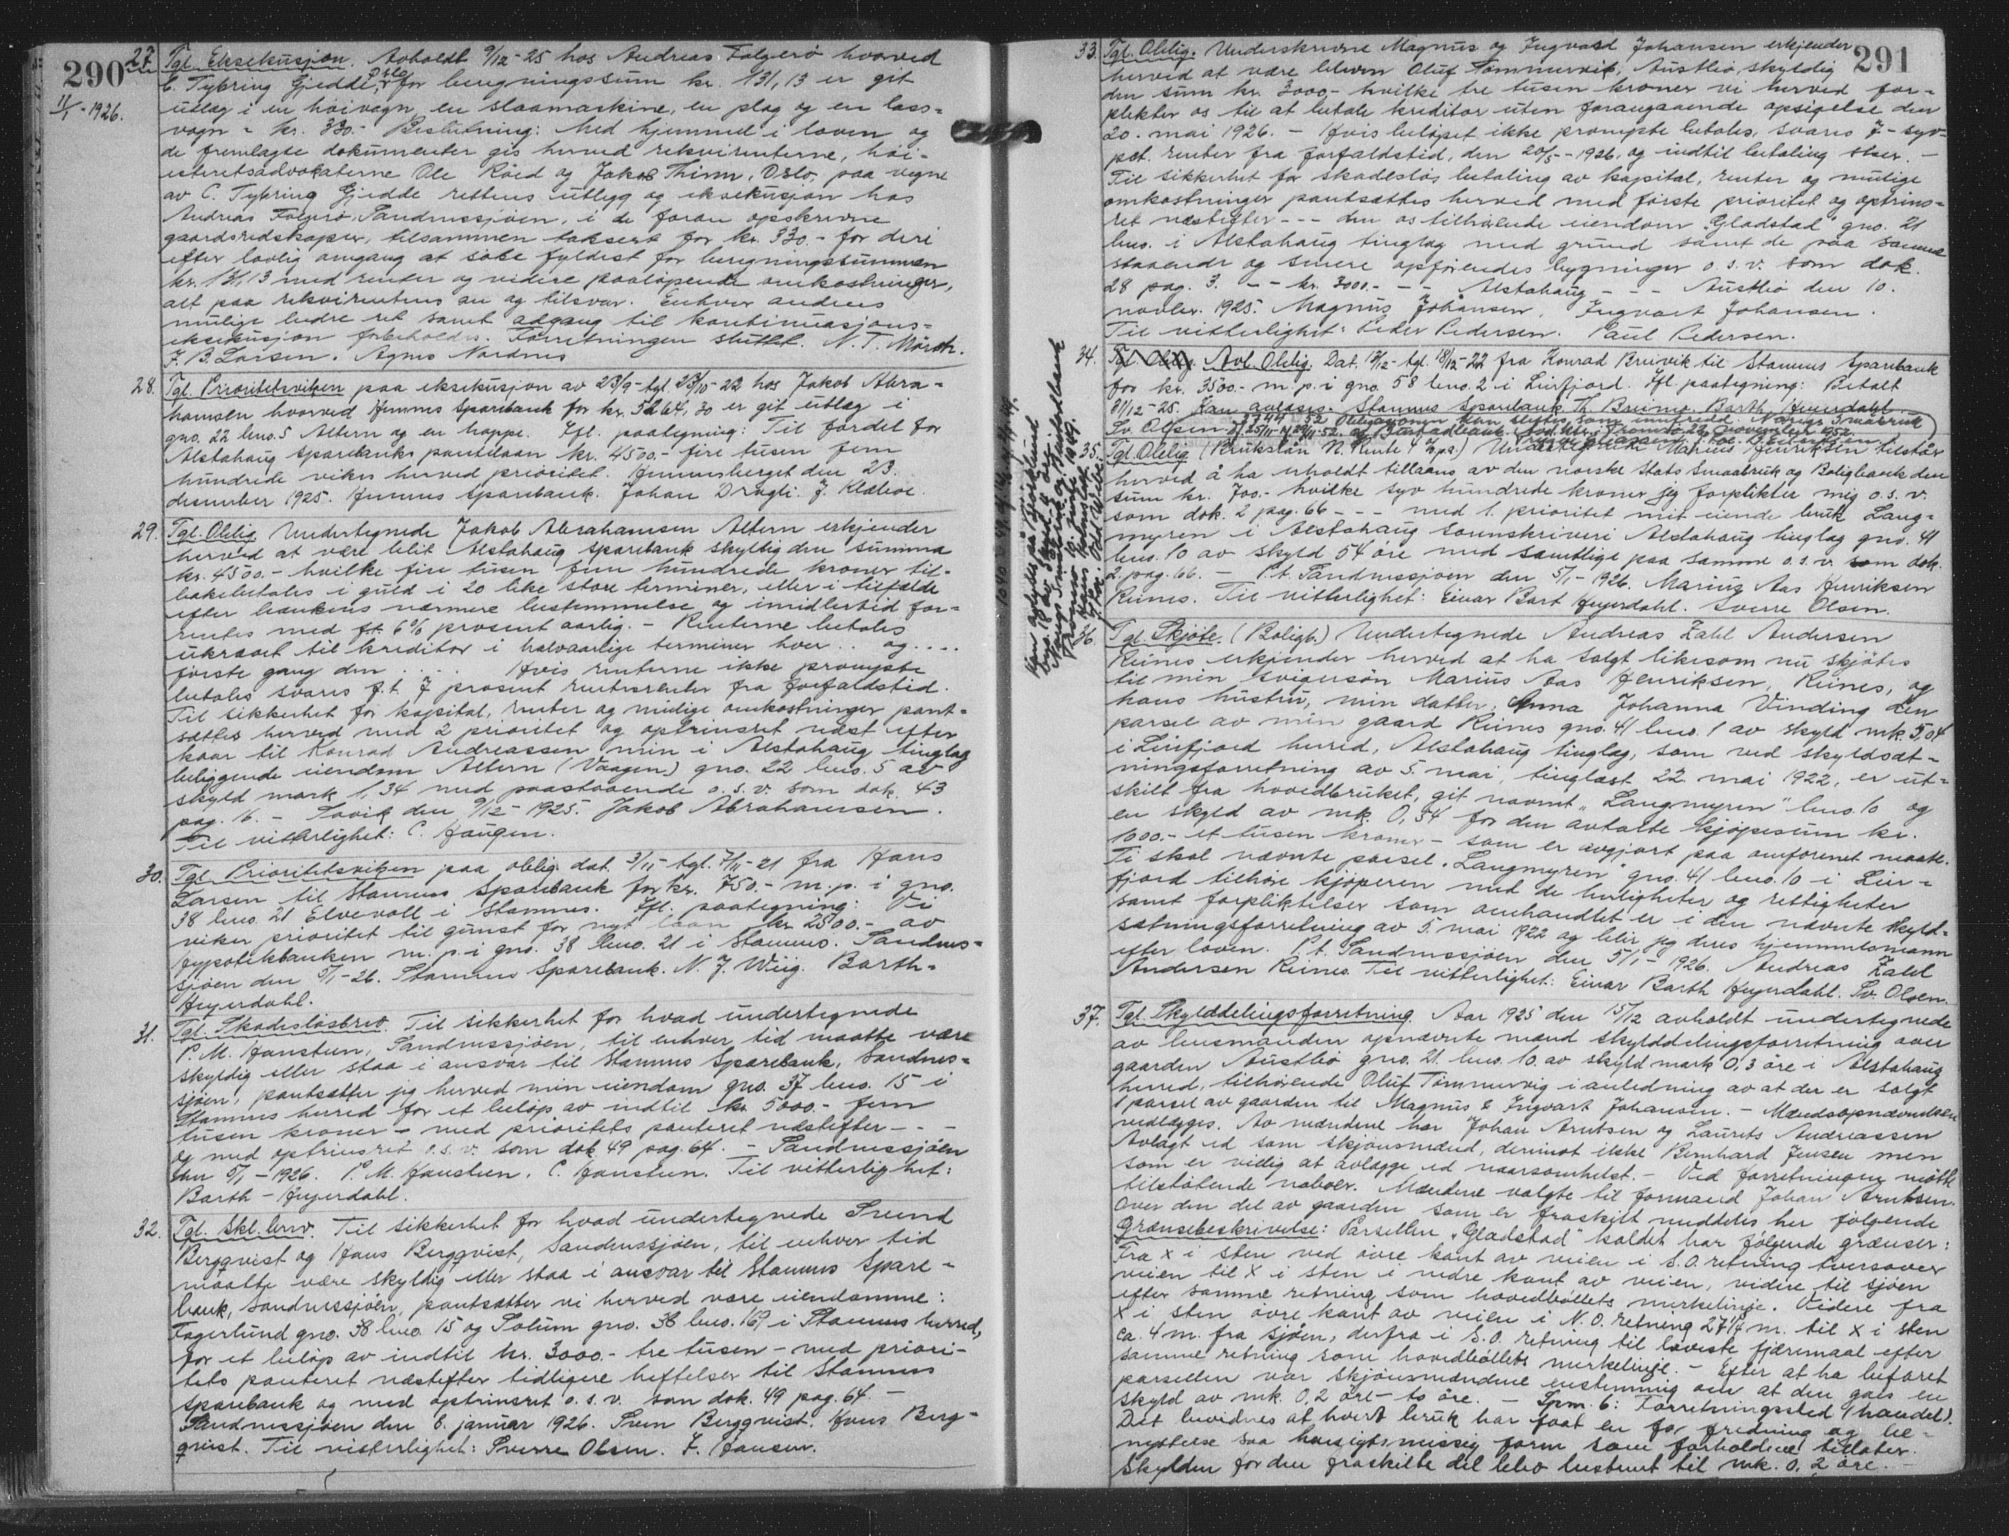 290
11/1 - 1926.
27. Tgl. Eksekusjon. Avholdt 9/12-25 hos Andreas Falgerø hvorved
C. Tybring Gjedde, Oslo for beregningssum kr. 131,13 er git
utlæg i en høivogn, en slaamaskine, en plog og en lass-
vogn = kr. 330.- Beslutning: Med hjemmel i loven og
de fremlagte dokumenter gis herved rekvirenterne, høi-
esteretsadvokaterne Ole Røed og Jakob Thinn, Oslo, paa vegne
av C. Tybring Gjedde rettens utlegg og eksekusjon hos
Andreas Falgerø, Sandnessjøen, i de foran opskrevne
gaardsredskaper, tilsammen taksert for kr. 330.- for deri
efter lovlig omgang at søke fyldest for beregningssummen
kr. 131,13 med renter og videre paaløpende omkostninger,
alt paa rekvirentens an og tilsvar. Enhver andens
mulige bedre ret samt adgang til kontinuasjons-
eksekusjon forbeholdes. Forretningen sluttet. N. T. Mørch.
J. B. Larsen. Agnes Nordnes
28. Tgl. Prioritetsviken paa eksekusjon av 23/9- tgl. 23/10-22 hos Jakob Abra-
hamsen hvorved Hemnes Sparebank for kr. 5264,30 er git utlæg i
gno. 22 bno. 5 Altern og en hoppe. Ifl. paategning: Til fordel for
Alstahaug Sparebanks pantelaan kr. 4500.- fire tusen fem
hundrede vikes herved prioritet. Hemnesberget den 23.
desember 1925. Hemnes Sparebank. Johan Dragli. J. Klæboe.
29. Tgl. Oblig. Undertegnede Jakob Abrahamsen Altern erkjender
herved at være blit Alstahaug Sparebank skyldig den summa
kr. 4500.- hvilke fire tusen fem hundrede kroner til-
bakebetales i guld i 20 like store terminer, eller i tilfælde
efter bankens nærmere bestemmelse og imidlertid for-
rentes med f.t. 6% prosent aarlig. - Renterne betales
ukrævet til kreditor i halvaarlige terminer hver .. og ....
første gang den ... Hvis renterne ikke promptе
betales svares f.t. 7 prosent rentesrenter fra forfaldstid.
Til sikkerhet for kapital, renter og mulige omkostninger pant-
sættes herved med 2 prioritet og optrinsret næst efter
kaar til Konrad Andreassen min i Alstahaug tinglag
beliggende eiendom Altern (Vaagen) gno. 22 bno. 5 av
skyld mark 1,34 med paastaaende o.s.v. som dok. 43
pag. 16. - Søvik den 9/12 - 1925. Jakob Abrahamsen.
Til vitterlighet: C. Haugen.
30. Tgl. Prioritetsviken paa oblig. dat. 3/11- tgl. 7/11-21 fra Hans
Larsen til Stamnes Sparebank for kr. 750.- m.p. i gno.
38 bno. 21 Elvevoll i Stamnes. Ifl. paategning: Vi
viker prioritet til gunst for nyt laan kr 2500.- av
Hypotekbanken m.p. i gno. 38 bno. 21 i Stamnes. Sandnes-
sjøen den 5/1-26. Stamnes Sparebank. N. J. Wiig. Barth-
Heyerdahl.
31. Tgl. Skadesløsbrev. Til sikkerhet for hvad undertegnede
P. M. Hansteen, Sandnessjøen, til enhver tid maatte være
skyldig eller staa i ansvar til Stamnes Sparebank, Sandnes-
sjøen, pantsætter jeg herved min eiendom gno. 37 bno. 15 i
Stamnes herred for et beløp av indtil kr 5000.- fem
tusen kroner - med prioritets panteret næstefter - - -
og med optrinsret o.s.v. som dok 49 pag. 64. - Sandnessjøen
den 5/1 - 1926. P. M. Hansteen. C. Hansteen. Til vitterlighet:
Barth - Heyerdahl.
32. Tgl. Skl. brev. Til sikkerhet for hvad undertegnede Svend
Bergqvist og Hans Bergqvist, Sandnessjøen, til enhver tid
maatte være skyldig eller staa i ansvar til Stamnes Spare-
bank, Sandnessjøen, pantsætter vi herved vore eiendomme:
Fagerlund gno. 38 bno. 15 og Solum gno. 38 bno. 167 i Stamnes herred,
for et beløp av indtil kr. 3000.- tre tusen - med priori-
tets panteret næstefter tidligere heftelser til Stamnes
Sparebank og med optrinsret o.s.v. som dok. 49 pag. 64. -
Sandnessjøen den 8. januar 1926. Sven Bergqvist. Hans Berg-
qvist. Til vitterlighet: Sverre Olsen. F. Hansen.
291
33. Tgl. Oblig. Underskrevne Magnus og Ingvard Johansen erkjender
herved at være bleven Oluf Tømmervik, Austbø, skyldig
den sum kr. 3000.- hvilke tre tusen kroner vi herved for-
plikter os til at betale kreditor uten forangaaende opsigelse den
20. mai 1926. - Hvis beløpet ikke prompte betales, svares 7 - syv-
pct. renter fra forfaldstid, den 20/5-1926, og indtil betaling sker. -
Til sikkerhet for skadesløs betaling av kapital, renter og mulige
omkostninger pantsættes herved med første prioritet og optrins-
ret næstefter - - - den os tilhørende eiendom "Gladstad" gno. 21
bno. i Alstahaug tinglag med grund samt de paa samme
staaende og senere opførendes bygninger o.s.v. som dok.
28 pag. 3. - - kr. 3000.- - - Alstahaug - - - Austbø den 10.
novbr. 1925. Magnus Johansen. Ingvart Johansen.
Til vitterlighet: Peder Pedersen. Paul Pedersen.
34. Tgl. Oblig. Avl. Oblig. Dat. 13/12- tgl. 18/12-22 fra Konrad Breivik til Stamnes Sparebank
for kr. 3500.- m.p. i gno. 58 bno. 2 i Leirfjord. Ifl. paategning: Betalt
31/12-25. Kan avlæses. Stamnes Sparebank Th. Breimo. Barth Heyerdahl.
Sv. Olsen
35. Tgl. Oblig (Brukslån N. Rente 1 kps.) Undertegnede Marius Henriksen tilstår
herved å ha erholdt tillaans av den norske Stats Smaabruk og Boligbank den
sum kr. 700.- hvilke syv hundrede kroner jeg forplikter mig o.s.v.
som dok. 2 pag. 66 - - - med 1. prioritet mit eiende bruk Lang-
myren i Alstahaug sorenskriveri Alstahaug tinglag gno. 41
bno. 10 av skyld 54 øre med samtlige paa samme o.s.v. som dok.
2 pag. 66. - P.t. Sandnessjøen den 5/1-1926. Marius Aas Henriksen
Reines. Til vitterlighet: Einar Bart Heyerdahl. Sverre Olsen.
36. Tgl. Skjøte. (Boligb.) Undertegnede Andreas Zahl Andersen
Reines erkjender herved at ha solgt likesom nu skjøtes
til min svigersøn Marius Aas Henriksen, Reines, og
hans hustru, min datter, Anna Johanna Vinding den
parsel av min gaard Reines gno. 41 bno. 1 av skyld mk. 5,04
i Leirfjord herred, Alstahaug tinglag, som ved skyldsæt-
ningsforretning av 5. mai, tinglæst 22 mai 1922, er ut-
skilt fra hovedbruket, git navnet "Langmyren" bno. 10 og
en skyld av mk. 0,54 for den avtalte kjøpesum kr.
1000.- et tusen kroner - som er avgjort paa omforenet maate.
Ti skal nævnte parsel "Langmyren" gno. 41 bno. 10 i Leir-
fjord tilhøre kjøperen med de herligheter og rettigheter
samt forpliktelser som omhandlet er i den nævnte skyld-
sætningsforretning av 5. mai 1922 og blir jeg deres hjemmelsmann
efter loven. P.t. Sandnessjøen den 5/1-1926. Andreas Zahl
Andersen Reines. Til vitterlighet: Einar Barth Heyerdahl. Sv. Olsen.
37. Tgl. Skylddelingsforretning. Aar 1925 den 15/12 avholdt undertegnede
av lensmanden opnævnte mænd skylddelingsforretning over
gaarden Austbø gno. 21. bno. 10. av skyld mark 0,3 øre i Alstahaug
herred, tilhørende Oluf Tømmervig i anledning av at der er solgt
1 parsel av gaarden til Magnus & Ingvart Johansen. - Mændsopnævnelsen
vedlægges. Av mændene har Johan Arntsen og Laurits Andreassen
avlagt ed som skjønsmænd, derimot ikke Bernhard Jensen men
som er villig at avlægge ed naarsomhelst. - Ved forretningen møtte
tilstøtende naboer. Mændene valgte til formand Johan Arntsen.
Over den del av gaarden som er fraskilt meddeles her følgende
Grænsebeskrivelse: Parsellen "Gladstad" kaldet har følgende grænser:
Fra x i sten ved øvre kant av veien i S.O. retning tversover
veien til x i sten i nedre kant av veien, videre til sjøen
efter samme retning som hovedbøllets merkelinje. Videre fra
x i sten øvre kant av veien i N.O. retning 27 1/4 m. til x i sten
ca. 4 m. fra sjøen, derfra i S.O. retning til laveste fjæremaal efter
samme retning som hovedbøllets merkelinje. - Efter at ha befaret
parsellen var skjønsmændene enstemmig om at den gaes en
skyld av mk. 0,2 øre - to øre. - Spm. 6: Forretningssted (handel).
Det bevidnes at hvert bruk har faat en for fredning og be-
nyttelse saa hensigtsmessig form som forholdene tillater.
Skylden for den fraskilte del blev bestemt til mk. 0,2 øre. -